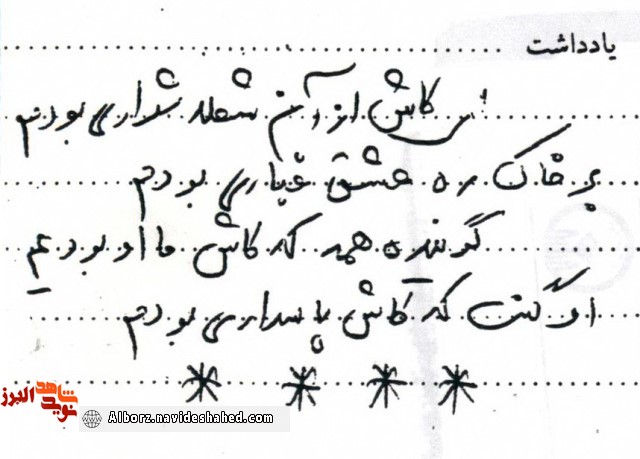 یادداشت
ای کاش از آن شعله شراری بودم
بر خاک ره عشق غباری بودم
گویند همه که کاش ما او بودیم
او گفت که کاش پاسداری بودم
نوید شاهد البرز
Alborz.navideshahed.com